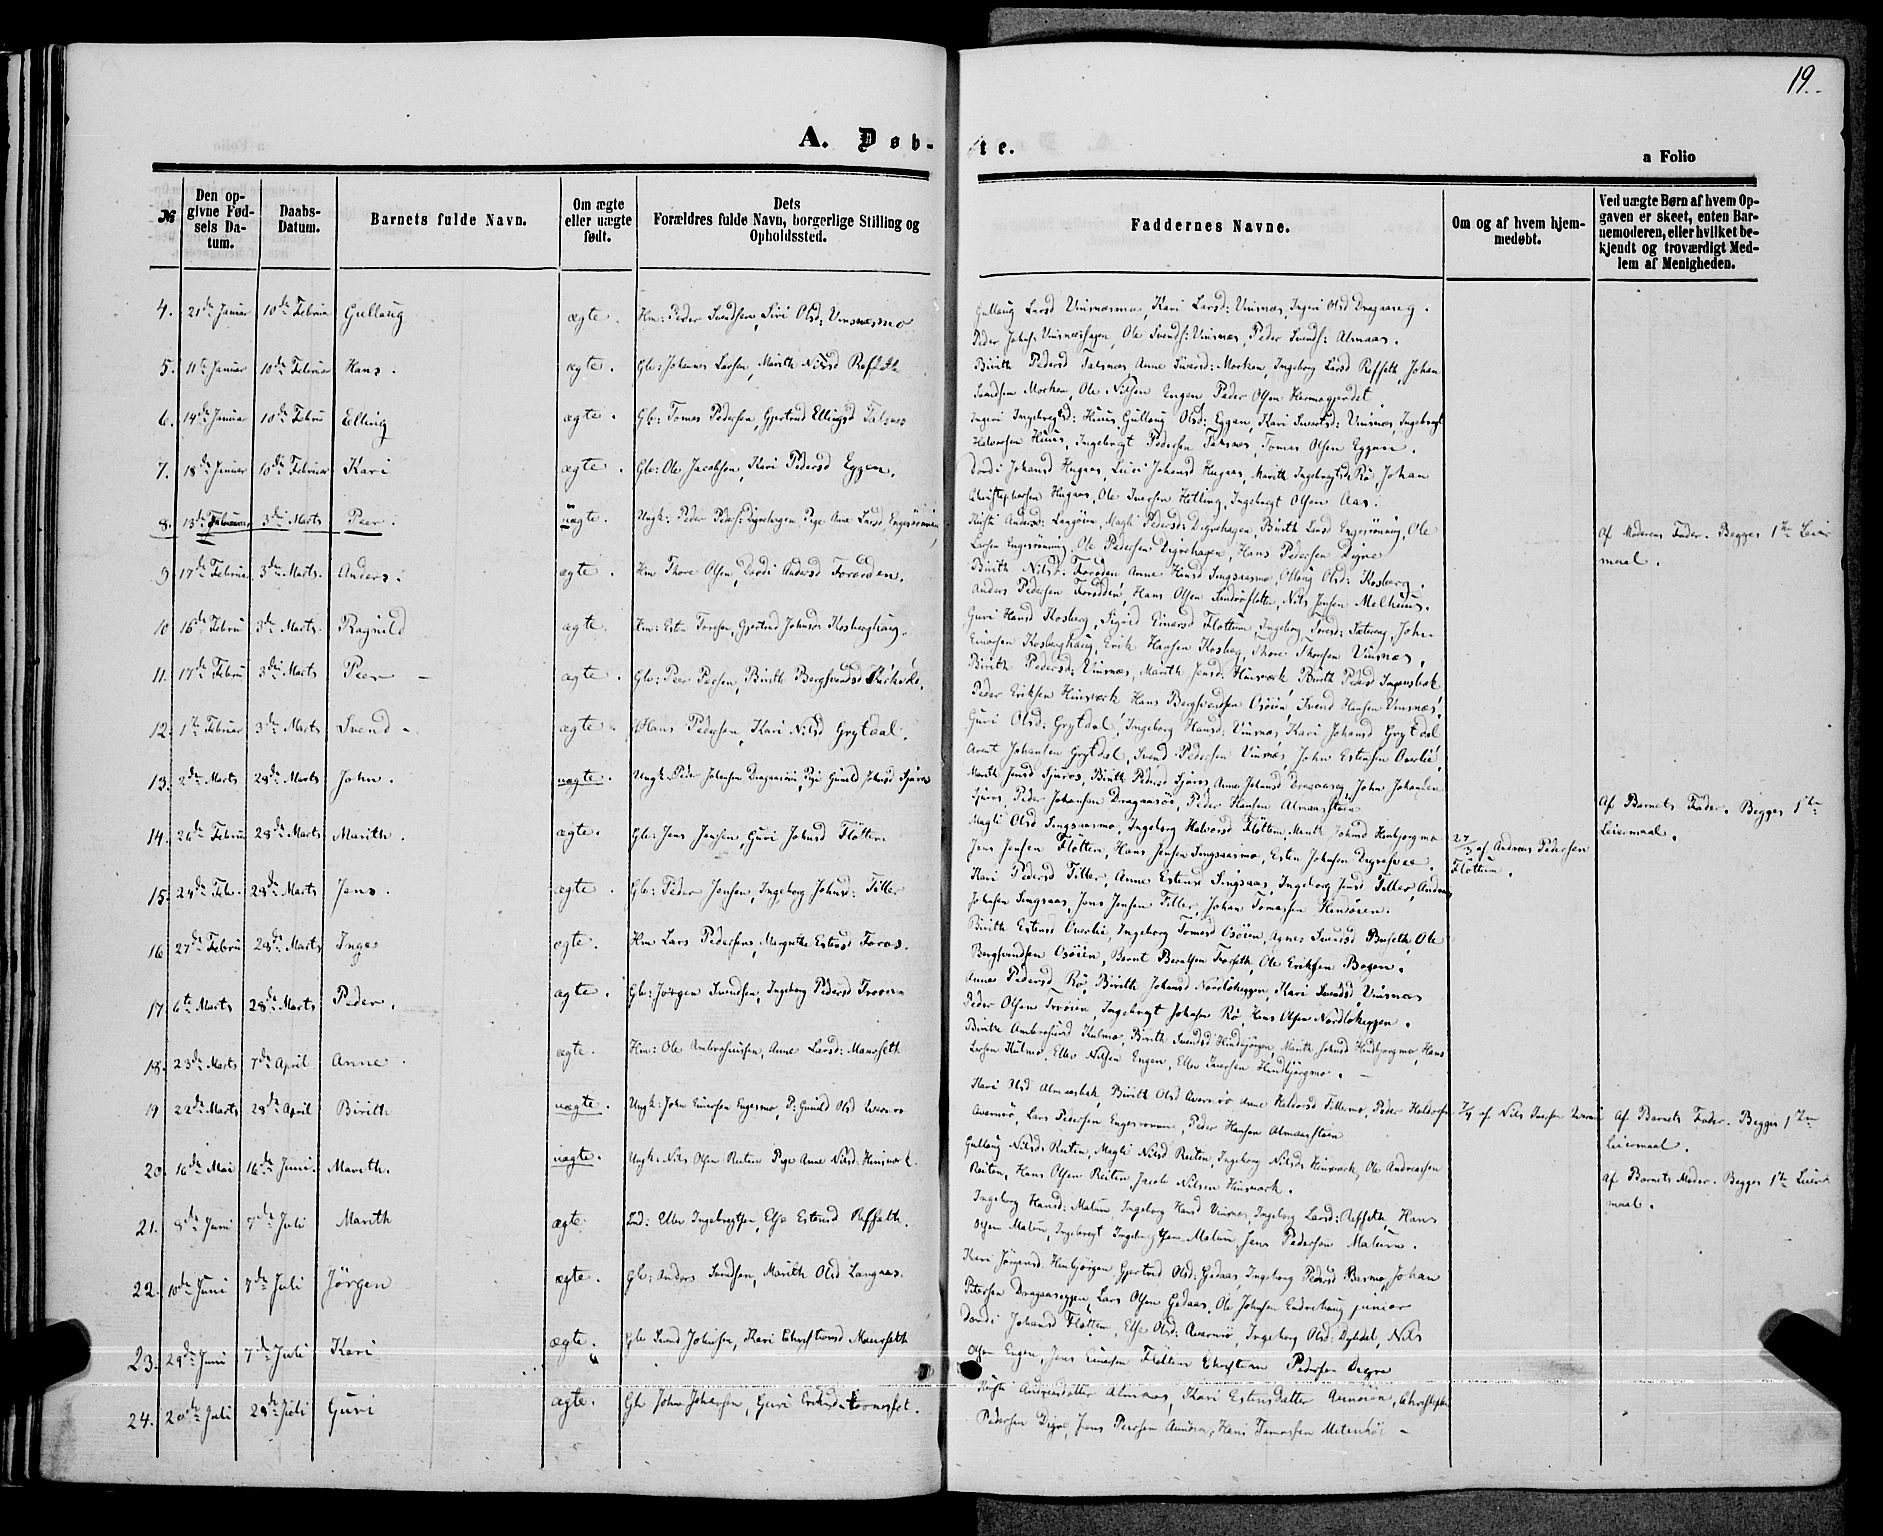 19.
A. Døb-
te.
a Folio
№
Den op-
givne Fød-
sels Da-
tum.
Daabs-
Datum.
Barnets fulde Navn.
Om ægte
eller uægte
født.
Dets
Forældres fulde Navn, borgerlige Stilling og
Opholdssted.
Faddernes Navne.
Om og af hvem hjem-
medøbt.
Ved uægte Børn af hvem Op-
gaven er skeet, enten Bar-
nemoderen, eller hvilket be-
kjendt og troværdigt Med-
lem af Menigheden.
4. 21de Januar 10de Februar Gullaug ægte. Hm: Peder Svendsen, Siri Olsd: Vinsnæsmo
Gullaug Larsd Vinsnæsmo, Kari Larsd: Vinsnæs, Ingeri Olsd Dragaaseg.
Peder Johns: Vinsnæshagen, Ole Svends: Vinsnæs, Peder Svends: Almaas.
5. 11te Januar 10de Februar Hans. ægte. Gbr: Johannes Larsen, Marith Nilsd Refseth
Birith Pedersd Talsnæs, Anne Iversd: Morken, Ingeborg Larsd Refseth, Johan
Svendsen Morken, Ole Nilsen Engen, Peder Olsen
6. 14de Januar 10de Febru Elling ægte. Gbr: Tomas Pedersen, Gjertrud Ellingsd Talsnes
Ingeri Ingebrigtsd: Huus, Gullaug Olsd: Eggen, Kari Sivertsd: Vinsnæs, Ingebrigt
Halvorsen Huus, Ingebrigt Pedersen Talsnæs, Tomas Olsen Eggen.
7. 18de Januar 10de Februar Kari ægte. Gbr: Ole Jacobsen, Kari Pedersd Eggen.
Dordi Johansd Hugaas, Johansd Hugaas, Marith Ingebrigtsd Rø, Johan
Christophersen Hugaas, Ole Iversen Hetting, Ingebrigt Olsen Aas.
8. 13de Februar 3die Marts Peer. uægte. Ungk: Peder Peders: Digrehagen, Pige Anne Larsd, Engesrønning
Andersd: Langøien, Magli Pedersd: Digrehagen, Birith Larsd Engesrønning, Ole
Larsen Engesrønning, Ole Pedersen Digrehagen, Hans Pedersen Digre
Af Moderens Fader. Begges 1te Leier
maal.
9. 17de Februar 3die Marts. Anders. ægte. Hm Thore Olsen, Dordi Andersd Forodden.
Birith Nilsd: Forodden, Anne Hansd Singsaasmo, Olaug Olsd: Kosberg.
Anders Pedersen Forodden, Hans Olsen, Nils Jonsen Melhuus.
10 16de Febru 3die Marts Ragnild ægte. Hm: Esten Toresen, Gjertrud Johnsd: Kosberghaug.
Guri Hansd Kosberg, Sigrid Einersd Flottum, Ingeborg Toresd: Sætereng, John
Einersen Kosberghaug, Erik Hansen Kosberg, Thore Thoresen Vinsnæs.
11. 17de Febru 3die Marts Peer - ægte. Gbr: Peer Persen, Birith Bergsvendsd
Birith Pedersd: Vinsnæs, Marith Jensd: Hinsverk, Birith Pedersd Ingensbak
Peder Eriksen Hinsverk, Hans Bergsvendsen Osøien, Svend Hansen Vinsnæs.
12. 1te Februar 3die Marts Svend - ægte. Hans Pedersen, Kari Nilsd Grytdal.
Guri Olsd: Grytdal, Ingeborg Hansd: Vinsnæs, Kari Johansd Grytdal
Arent Johansen Grytdal, Svend Pedersen Vinsnæs, John Estensen Overlie.
13. 2de Marts 28de Marts John. uægte. Ungk. Peder Johansen Dragaasøie, Pige Gunild Johnsd Sjuros
Marith Jensd Sjuros, Birith Pedersd Sjuros, Anne Johansd Dragaaseg, John Johansen
Sjuros, Peder Johansen Dragaasøe, Peder Hansen Almaassteen
Af Barnets Fader. Begges 1te
Leiermaal.
14. 26de Febru 28de Marts Marith. ægte. Gbr: Jens Jensen, Guri Johnsd Flotten
Magli Olsd Singsaasmo, Ingeborg Halvorsd Flottem, Marith Johnsd Hinbjørgmo
Jens Jensen Flotten, Hans Jensen Singsaasmo, Esten Johnsen
27/3 af Andreas Pedersen
Flottum.
15. 24de Febr. 28de Marts Jens. ægte. Gbr: Peder Jensen, Ingeborg Johnsd: Tiller
Kari Pedersd Tiller, Anne Estensd Singsaas, Ingeborg Jensd Tiller, Anders
Johnsen Singsaas, Jens Jensen Tiller, Johan Tomassen
16 27de Febru 28de Marts Inger ægte. Hm Lars Pedersen, Margrethe Estensd Foros.
Birith Estensd Overlie, Ingeborg Tomasd Osøien, Agnes Svendsd Buseth, Ole
Bergsvendsen Osøien, Bernt Berntsen Forseth, Ole Eriksen Bogen.
17. 6te Marts 28de Marts Peder. ægte. Gbr: Jørgen Svendsen, Ingeborg Pedersd Troøien
Anne Pedersd Rø, Birith Johnsd Nordlokeggen, Kari Svendsd Vinsnæs
Peder Olsen Troøien, Ingebrigt Johnsen Rø, Hans Olsen Nordlokeggen.
18. 23de Marts 7de April Anne. ægte. Hm: Ole Ambrosiussen, Anne Larsd: Manseth
Birith Ambrosiusd Kulmo, Birith Svendsd Hindbjørgen, Marith Johnsd Hindbjørgmo, Hans
Larsen Kulmo, Eller Nilsen Engen, Eller Iversen Hindbjørgmo. -
19 22de Marts 28de April Birith uægte. Ungk: John Einersen Engesmo, P: Gunild Olsd
Kari Olsd Almaasbak, Birith Olsd Avermo, Anne Haldorsd Tillermo, Peder Haldorsen
Avermo, Lars Pedersen, Peder Hansen Almaassteen
7/4 af Nils Iversen
Af Barnets Fader. Begges 1te
Leiermaal.
20. 16de Mai 16de Juni. Marith. uægte. Ungk: Nils Olsen Reiten Pige Anne Nilsd: Hinsverk.
Gullaug Nilsd: Reiten, Magli Nilsd Reiten, Ingeborg Nilsd: Hinsverk, Ole Andreassen
Reiten, Hans Olsen Reiten, Jacob Nilsen Hinsverk.
Af Barnets Moder. Begges 1te Leier
maal.
21. 8de Juni 7de Juli Marith ægte. Ind: Eller Ingebrigtsen, Else Estensd Refseth.
Ingeborg Hansd: Malum, Ingeborg Hansd Vinsnes, Ingeborg Larsd: Refseth, Hans
Olsen Malum, Ingebrigt Ingebrigtsen Malum, Jens Pedersen Malum.
22. 10de Juni 7de Juli Jörgen ægte. Gbr: Anders Svendsen, Marith Olsd Langaas.
Kari Jørgensd. Hinbjørgen, Gjertrud Olsd: Gedaas, Ingeborg Pedersd Barmo, Johan
Petersen Dragaaseggen, Lars Olsen Gedaas, Ole Johnsen Endrehaug junior
23. 29de Juni 7de Juli Kari ægte. Gbr Svend Johnsen, Kari Christiansd Manseth
Dordi Johansd Flottem, Else Olsd: Avermo, Ingeborg Olsd: Dyldal, Nils
Olsen Engen, Jens Einersen Flottem, Christian Pedersen Digre
24. 20de Juli 28de Juli Guri ægte. Gbr John Johansen, Guri Eriksd.
Andreasdatter Almaas, Kari Estensdatter, Christopher
Pedersen Digre, Jens Persen Aunøien, Hans Tomassen -